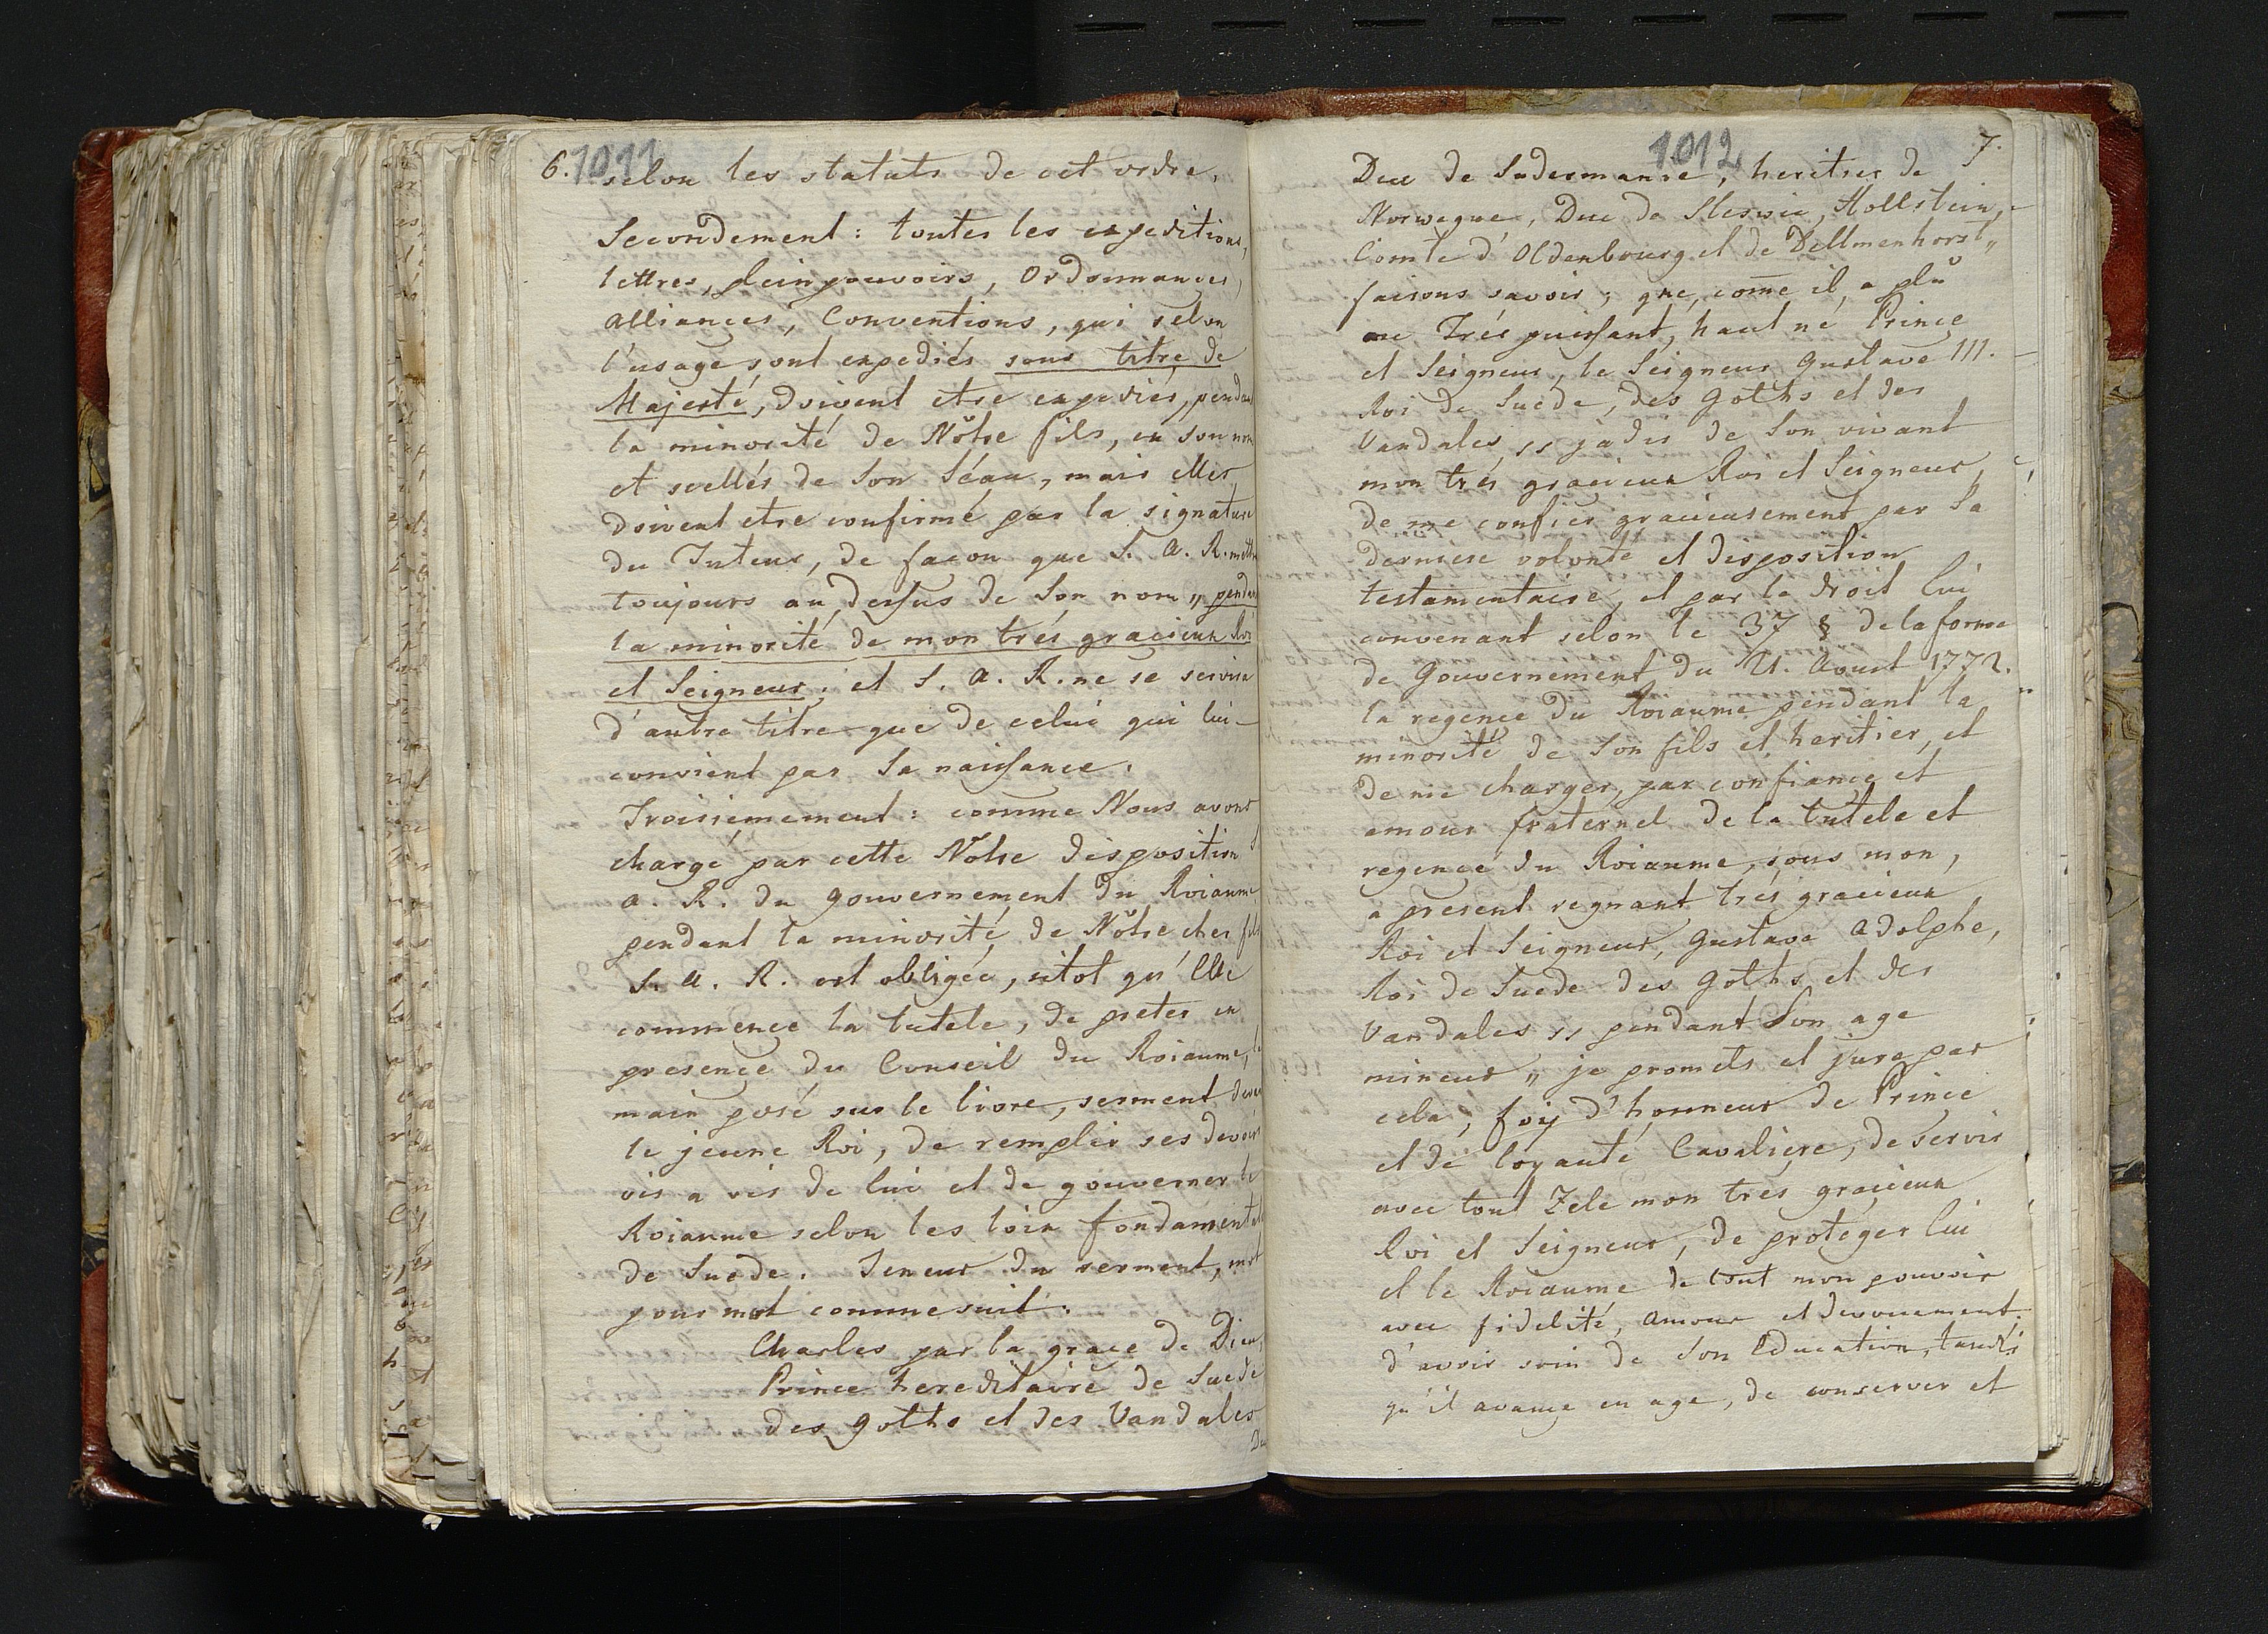 6. 1011
selon les statuts de cet ordre.
Secondement: toutes les expeditions,
lettres, pleinpouvoirs, Ordonnances,
Alliances, Conventions, qui selon
l'usage sont expediés sous titre de
Majesté, doivent etre expediés, pendant
la minorité de Nôtre fils, en son nom
et scellés de Son Séau, mais elles
doivent etre confirmé par la signature
du Tuteur, de facon que S. A. R. mettra
toujours au dessus de Son nom „ pendant
la minorité de mon trés gracieux Roi
et Seigneur; et S. A. R. ne se servira
d'autre titre que de celui qui lui
convient par Sa naissance.
Troisiemement: comme Nous avons
chargé par cette Nôtre disposition S
A. R. du gouvernement du Roiaume
pendant la minorité de Nôtre cher fils
S. A. R. est obligée, sitot qu'Elle
commence la tutele, de preter en
presence du Conseil du Roiaume, la
main posé sur le livre, serment devant
le jeune Roi, de remplir ses devoirs
vis a vis de lui et de gouverner le
Roiaume selon les loix fondamentales
de Suede. Teneur du serment, mot
pour mot comme suit:
Charles par la grace de Dieu,
Prince hereditaire de Suede
des Goths et des Vandales
Duc
1012 7.
Duc de Sudermanie, heritier de
Norwegue, Duc de Slesvic, Hollstein,
Comte d'Oldenbourg et de Dellmenhorst„
faisons savoir; que, come il a plû
au Trés puissant, haut né Prince
et Seigneur, le Seigneur Gustave III.
Roi de Suede, des Goths et des
Vandales „ jadis de Son vivant
mon trés gracieux Roi et Seigneur,
de me confier gracieusement par Sa
derniere volonté et disposition
testamentaire, et par le droit lui
convenant selon le 37 § de la forme
de Gouvernement du 21. Aoust 1772.
la regence du Roiaume pendant la
minorité de Son fils et heritier, et
de me charger, par confiance et
amour fraternel de la tutele et
regence du Roiaume, sous mon,
à present regnant trés gracieux
Roi et Seigneur, Gustave Adolphe,
Roi de Suede des Goths et des
Vandales „ pendant Son age
mineur „ je promets et jure par
cela, foiy d'honneur de Prince
et de loyauté Cavaliere, de servir
avec tout Zele mon tres gracieux
Roi et Seigneur, de proteger lui
et le Roiaume de tout mon pouvoir
avec fidelité, amour et devouement;
d'avoir soin de Son Education, tandis
qu'il avance en age, de conserver et